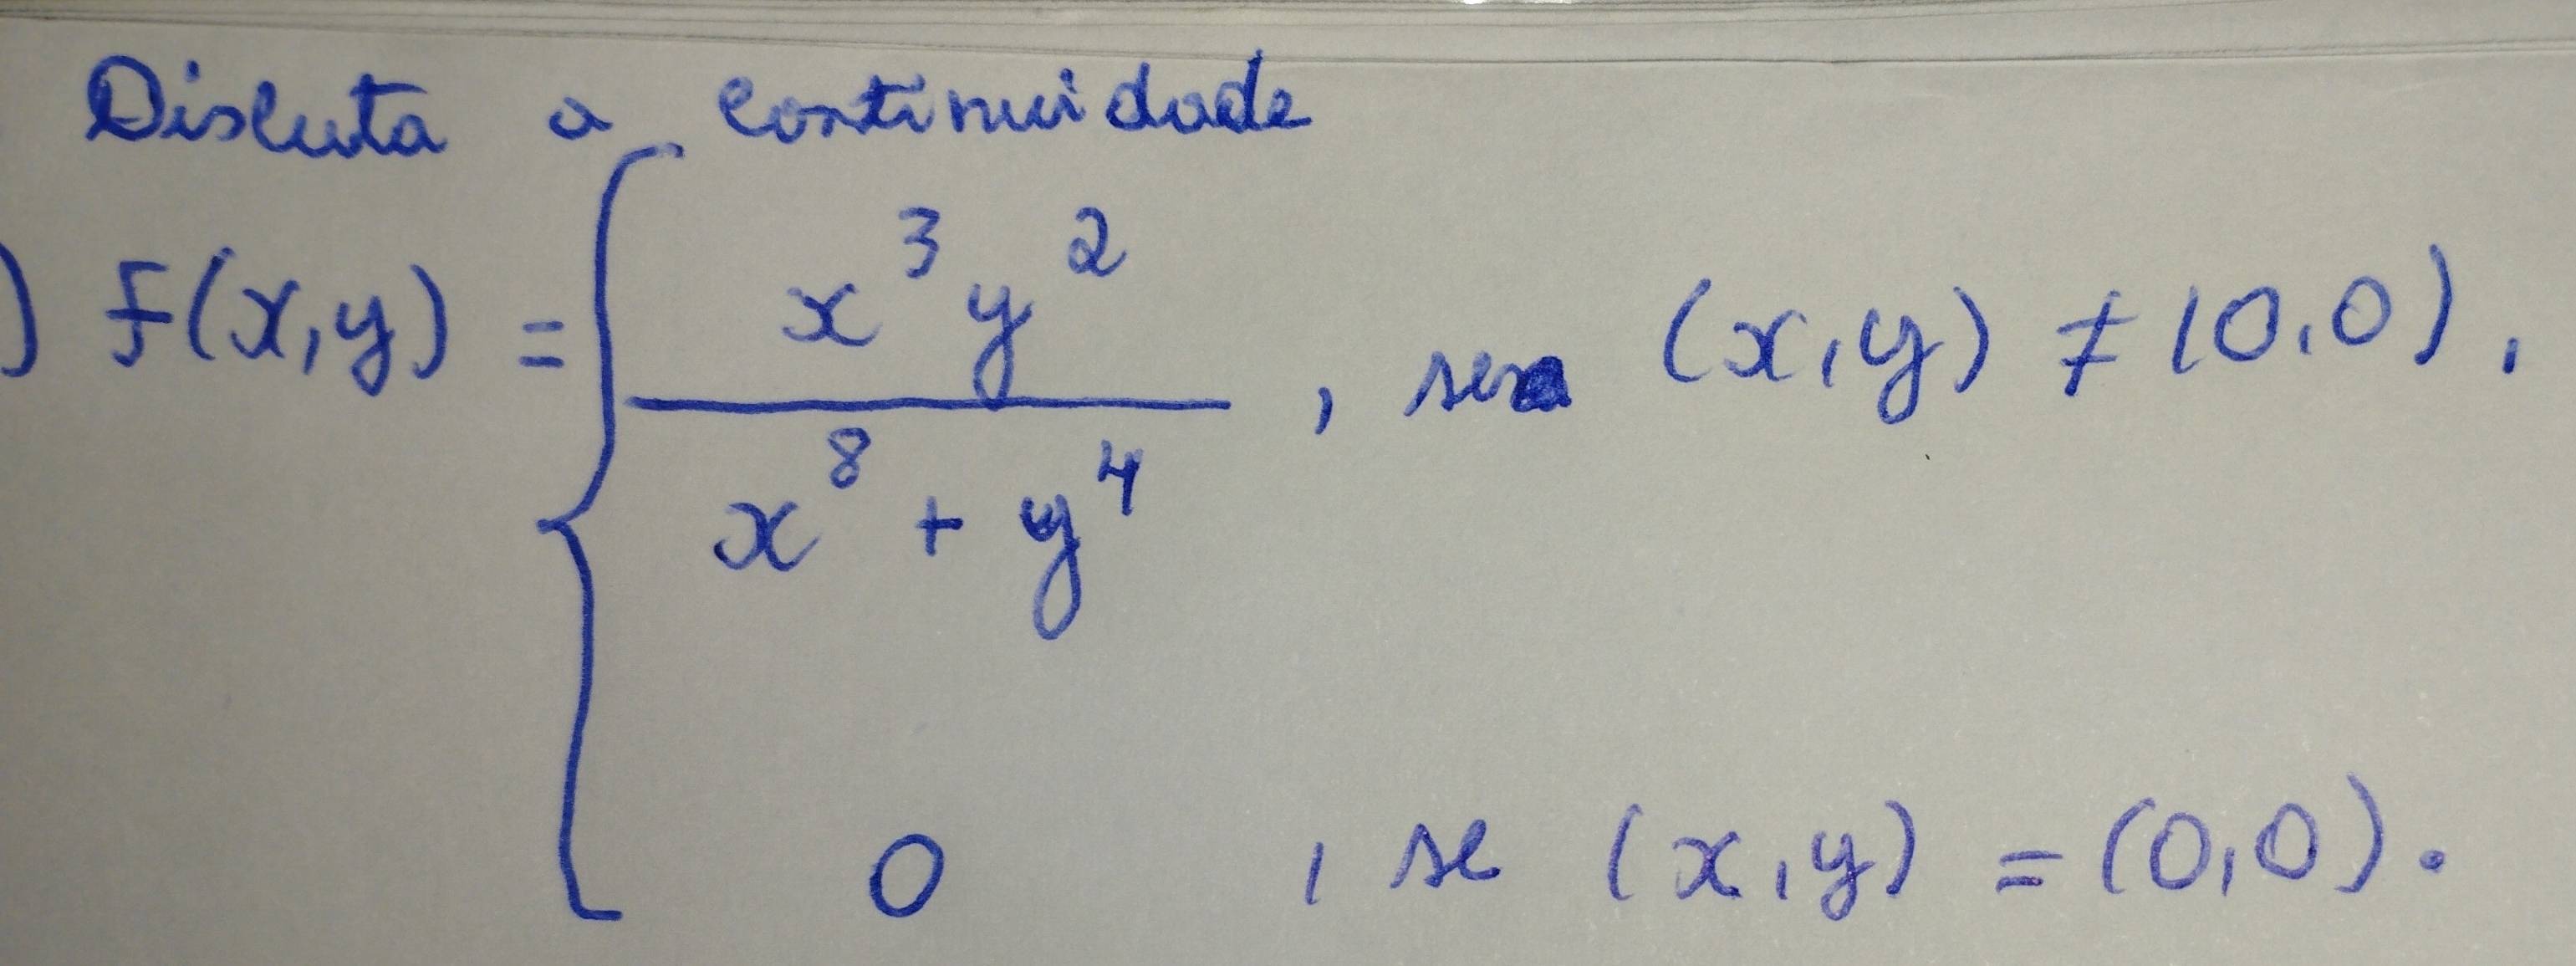 Discuta a continuidade
) f(x,y) = { x³y² / x⁸ + y⁴ , se (x,y) ≠ (0,0),
0 , se (x,y) = (0,0).